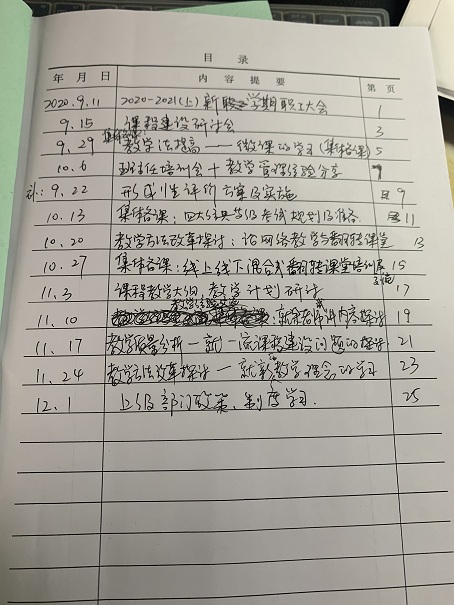 目 录
年 月 日 内 容 提 要 第 页
2020.9.11 2020-2021(上)新学期职工大会 1
9.15 课程建设研讨会 3
9.29 集体备课: 教学法提高——微课的学习(集体备课) 5
10.6 班主任培训会+教学管理经验分享 7
补: 9.22 形成性评价方案及实施 9
10.13 集体备课: 四六级 考试规划及准备 11
10.20 教学方法改革探讨: 论网络教学与翻转课堂 13
10.27 集体备课: 线上线下混合式翻转课堂培训 15
11.3 课程教学大纲,教学计划研讨 17
11.10 : 就 内容探讨 19
11.17 教学质量分析—就一流课程建设问题的探讨 21
11.24 教学方法改革探讨—就新教学理念的学习 23
12.1 上级部门政策、制度学习. 25